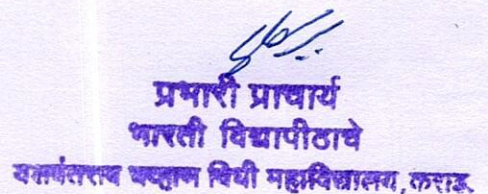 प्रभारी प्राचार्य
भारती विद्यापीठाचे
यशवंतराव चव्हाण विधी महाविद्यालय, कराड.